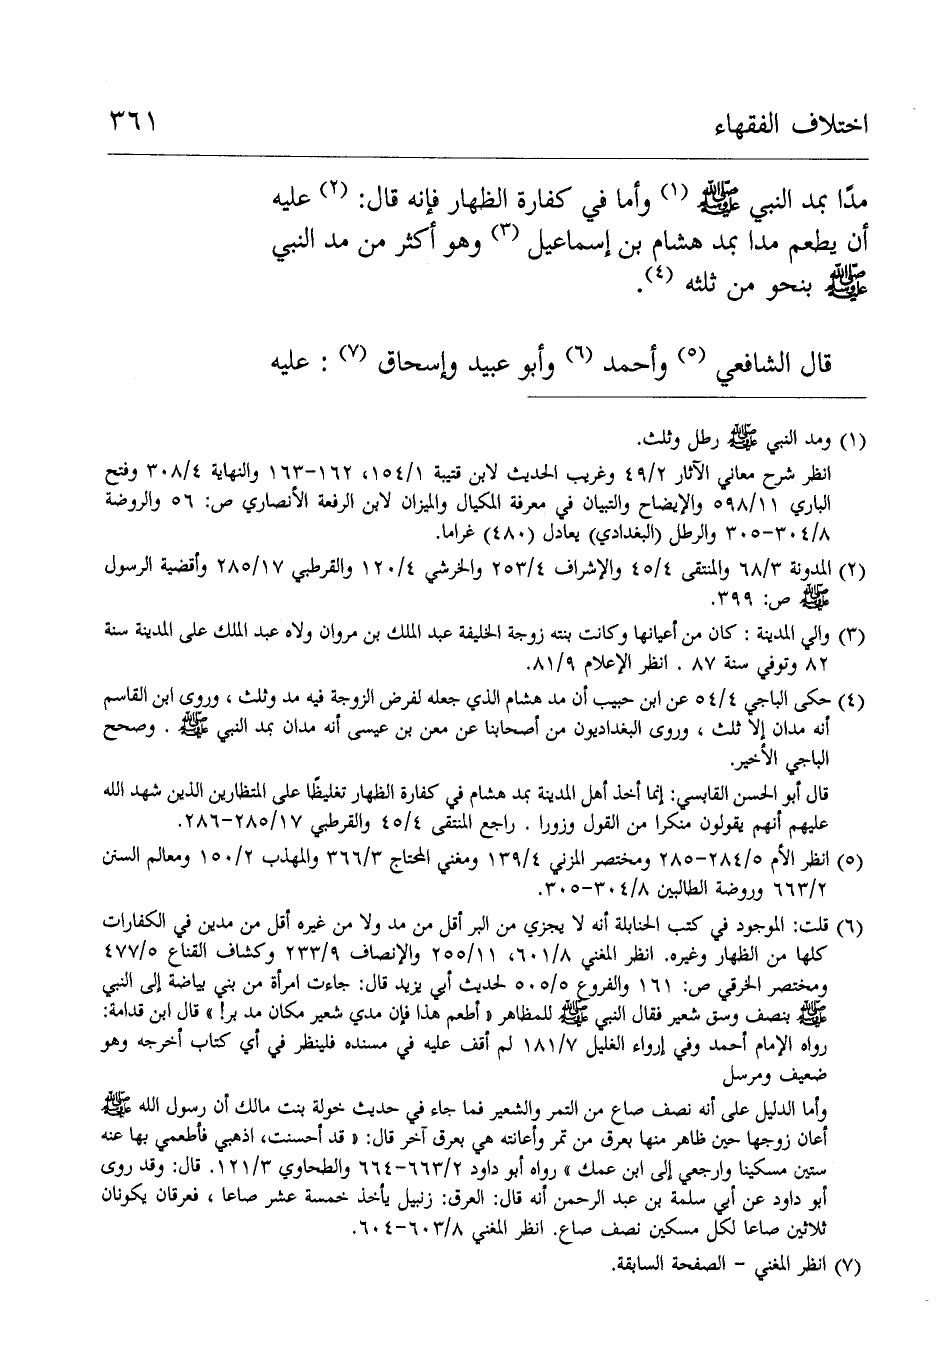 اختلاف الفقهاء ٣٦١
مدًا بمد النبي ﷺ (١) وأما في كفارة الظهار فإنه قال: (٢) عليه
أن يطعم مدا بمد هشام بن إسماعيل (٣) وهو أكثر من مد النبي
ﷺ بنحو من ثلثه (٤).
قال الشافعي (٥) وأحمد (٦) وأبو عبيد وإسحاق (٧) : عليه
(١) ومد النبي ﷺ رطل وثلث.
انظر شرح معاني الآثار ٤٩/٢ وغريب الحديث لابن قتيبة ١٥٤/١، ١٦٢-١٦٣ والنهاية ٣٠٨/٤ وفتح
الباري ٥٩٨/١١ والإيضاح والتبيان في معرفة المكيال والميزان لابن الرفعة الأنصاري ص: ٥٦ والروضة
٣٠٤/٨-٣٠٥ والرطل (البغدادي) يعادل (٤٨٠) غراما.
(٢) المدونة ٦٨/٣ والمنتقى ٤٥/٤ والإشراف ٢٥٣/٤ والخرشي ١٢٠/٤ والقرطبي ٢٨٥/١٧ وأقضية الرسول
ﷺ ص: ٣٩٩.
(٣) والي المدينة : كان من أعيانها وكانت بنته زوجة الخليفة عبد الملك بن مروان ولاه عبد الملك على المدينة سنة
٨٢ وتوفي سنة ٨٧ . انظر الإعلام ٨١/٩.
(٤) حكى الباجي ٥٤/٤ عن ابن حبيب أن مد هشام الذي جعله لفرض الزوجة فيه مد وثلث ، وروى ابن القاسم
أنه مدان إلا ثلث ، وروى البغداديون من أصحابنا عن معن بن عيسى أنه مدان بمد النبي ﷺ . وصحح
الباجي الأخير.
قال أبو الحسن القابسي: إنما أخذ أهل المدينة بمد هشام في كفارة الظهار تغليظًا على المتظارين الذين شهد الله
عليهم أنهم يقولون منكرا من القول وزورا . راجع المنتقى ٤٥/٤ والقرطبي ٢٨٥/١٧-٢٨٦.
(٥) انظر الأم ٢٨٤/٥-٢٨٥ ومختصر المزني ١٣٩/٤ ومغني المحتاج ٣٦٦/٣ والمهذب ١٥٠/٢ ومعالم السنن
٦٦٣/٢ وروضة الطالبين ٣٠٤/٨-٣٠٥.
(٦) قلت: الموجود في كتب الحنابلة أنه لا يجزي من البر أقل من مد ولا من غيره أقل من مدين في الكفارات
كلها من الظهار وغيره. انظر المغني ٦٠١/٨، ٢٥٥/١١ والإنصاف ٢٣٣/٩ وكشاف القناع ٤٧٧/٥
ومختصر الخرقي ص: ١٦١ والفروع ٥٠٥/٥ لحديث أبي يزيد قال: جاءت امرأة من بني بياضة إلى النبي
ﷺ بنصف وسق شعير فقال النبي ﷺ للمظاهر « أطعم هذا فإن مدي شعير مكان مد بر! » قال ابن قدامة:
رواه الإمام أحمد وفي إرواء الغليل ١٨١/٧ لم أقف عليه في مسنده فلينظر في أي كتاب أخرجه وهو
ضعيف ومرسل
وأما الدليل على أنه نصف صاع من التمر والشعير فما جاء في حديث خولة بنت مالك أن رسول الله ﷺ
أعان زوجها حين ظاهر منها بعرق من تمر وأعانته هي بعرق آخر قال: « قد أحسنت، اذهبي فأطعمي بها عنه
ستين مسكينا وارجعي إلى ابن عمك » رواه أبو داود ٦٦٣/٢-٦٦٤ والطحاوي ١٢١/٣. قال: وقد روى
أبو داود عن أبي سلمة بن عبد الرحمن أنه قال: العرق: زنبيل يأخذ خمسة عشر صاعا ، فعرقان يكونان
ثلاثين صاعا لكل مسكين نصف صاع. انظر المغني ٦٠٣/٨-٦٠٤.
(٧) انظر المغني - الصفحة السابقة.